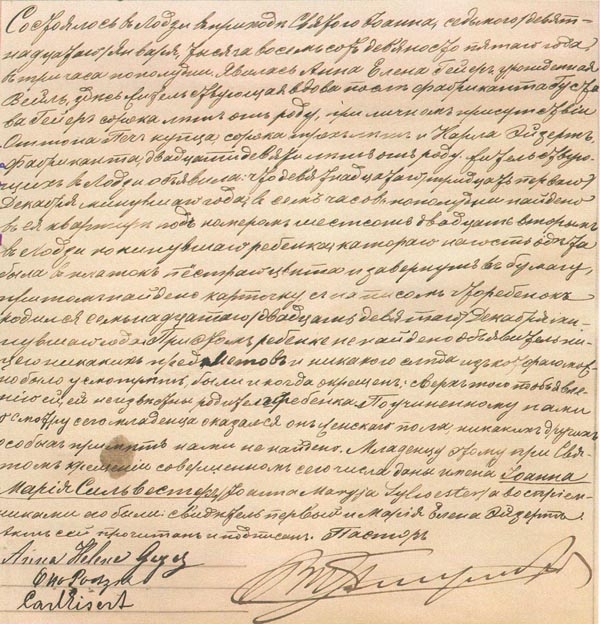 Состоялось въ Лодзи въ приходѣ Святаго Іоанна, седьмаго/девят-
надцатаго/ Января, тысяча восемьсотъ девяносто пятаго года,
въ три часа по полудни. Явилась Анна Елена Гейеръ урожденная
Вейль, здѣсь жительствующая вдова послѣ фабриканта Густа-
ва Гейеръ сорока лѣтъ отъ роду, при личномъ присутствіи
Оттона купца сорока трехъ лѣтъ и Карла Эйзертъ
фабриканта, двадцати девяти лѣтъ отъ роду, жительствую-
щихъ въ Лодзи объявила: что девятнадцатаго/тридцать перваго/
Декабря, минувшаго года, въ семь часовъ по полудни найдено
въ ея квартирѣ подъ номеромъ шестьсотъ двадцать вторымъ
въ Лодзи покинувшаго ребенка, котораго нагость одѣта
была въ платокъ пестраго цвѣта и завернута въ бумагу,
притомъ найдено карточку съ надписомъ что ребенокъ
родился семнадцатаго/двадцать девятаго/ Декабря ми-
нувшаго года. При этомъ ребенке не найдено объявительни-
цею никакихъ предметовъ и никакого слѣда изъ котораго мож-
но было бы и когда крещенъ; сверхъ того объявля-
ющей неизвѣстны родители ребенка. По учиненному нами
осмотру сего младенца оказался онъ женскаго пола, никакихъ другихъ
особыхъ примѣтъ нами не найдено. Младенцу этому при Свя-
томъ крещеніи совершенномъ сего числа даны имена Іоанна
Марія Сильвестеръ /Joanna Maryja Sylvester/ а воспріем-
никами его были: свидѣтель первый и Марія Елена Эйзертъ.
Актъ сей прочитанъ и подписанъ. Пасторъ
Anna Helene Geyer
Otto
Carl Eisert